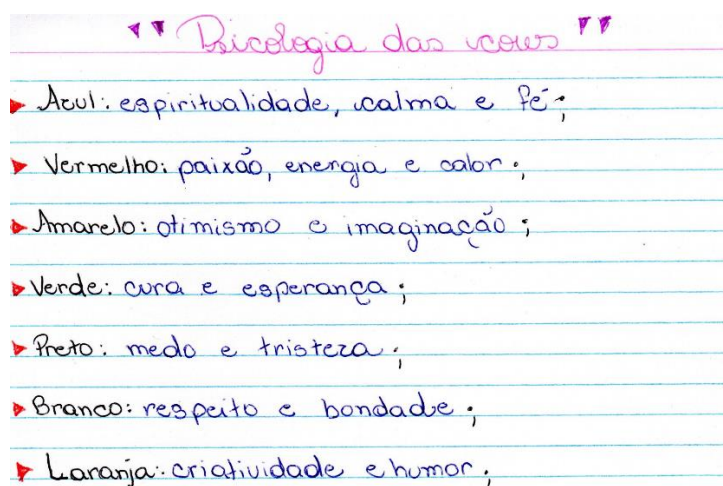 "Psicologia das cores"
Azul: espiritualidade, calma e fé;
Vermelho: paixão, energia e calor;
Amarelo: otimismo e imaginação;
Verde: cura e esperança;
Preto: medo e tristeza;
Branco: respeito e bondade;
Laranja: criatividade e humor;